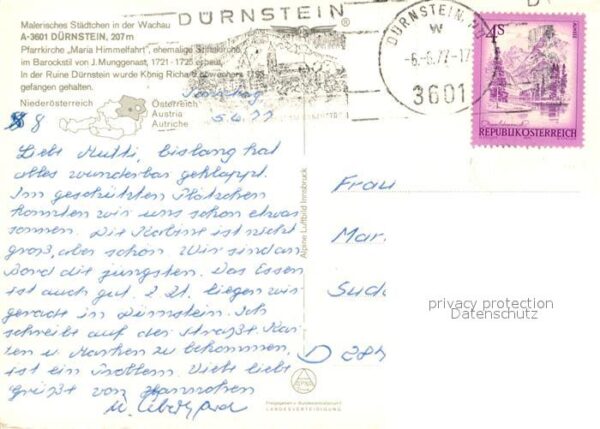 Malerisches Städtchen in der Wachau
A-3601 DÜRNSTEIN, 207m
Pfarrkirche „Maria Himmelfahrt", ehemalige Stiftskirche
im Barockstil von J.Munggenast, 1721-1725 erbaut.
In der Ruine Dürnstein wurde König Richard
gefangen gehalten.
Niederösterreich
Österreich
Austria
Autriche
DÜRNSTEIN
DÜRNSTEIN
W
-6.-6.77-17
3601
4S
REPUBLIK ÖSTERREICH
Sonntag
5.6.77
8
Liebe Mutti, bislang hat
alles wunderbar geklappt.
Im geschützten Plätzchen
konnten wir uns schon etwas
sonnen. Die Kabine ist nicht
groß, aber schön. Wir sind an
Bord die jüngsten. Das Essen
ist auch gut. Z. Zt. liegen wir
gerade in Dürnstein. Ich
schreibe auf der Straße. Kar-
ten u. Marken zu bekommen,
ist ein Problem. Viele liebe
Grüße von Hannchen
u.
Alpine Luftbild Innsbruck
Frau
Mar
D 284
privacy protection
Datenschutz
LANDESVERTEIDIGUNG